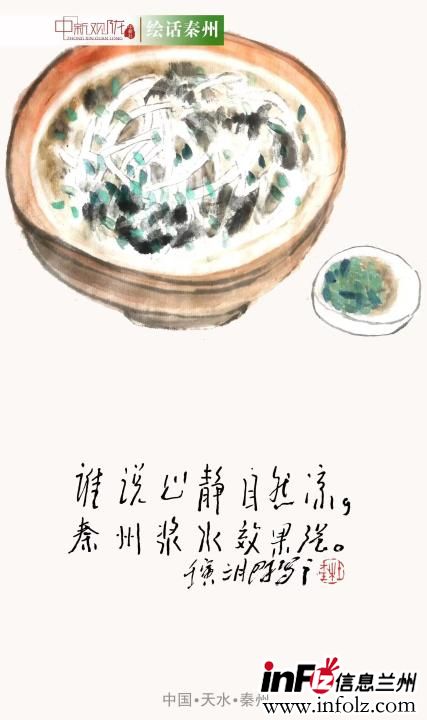 中新观陇
ZHONG XIN GUAN LONG
绘话秦州
谁说心静自然凉，
秦州浆水效果强。
中国·天水·秦州
inFlz信息兰州
www.infolz.com